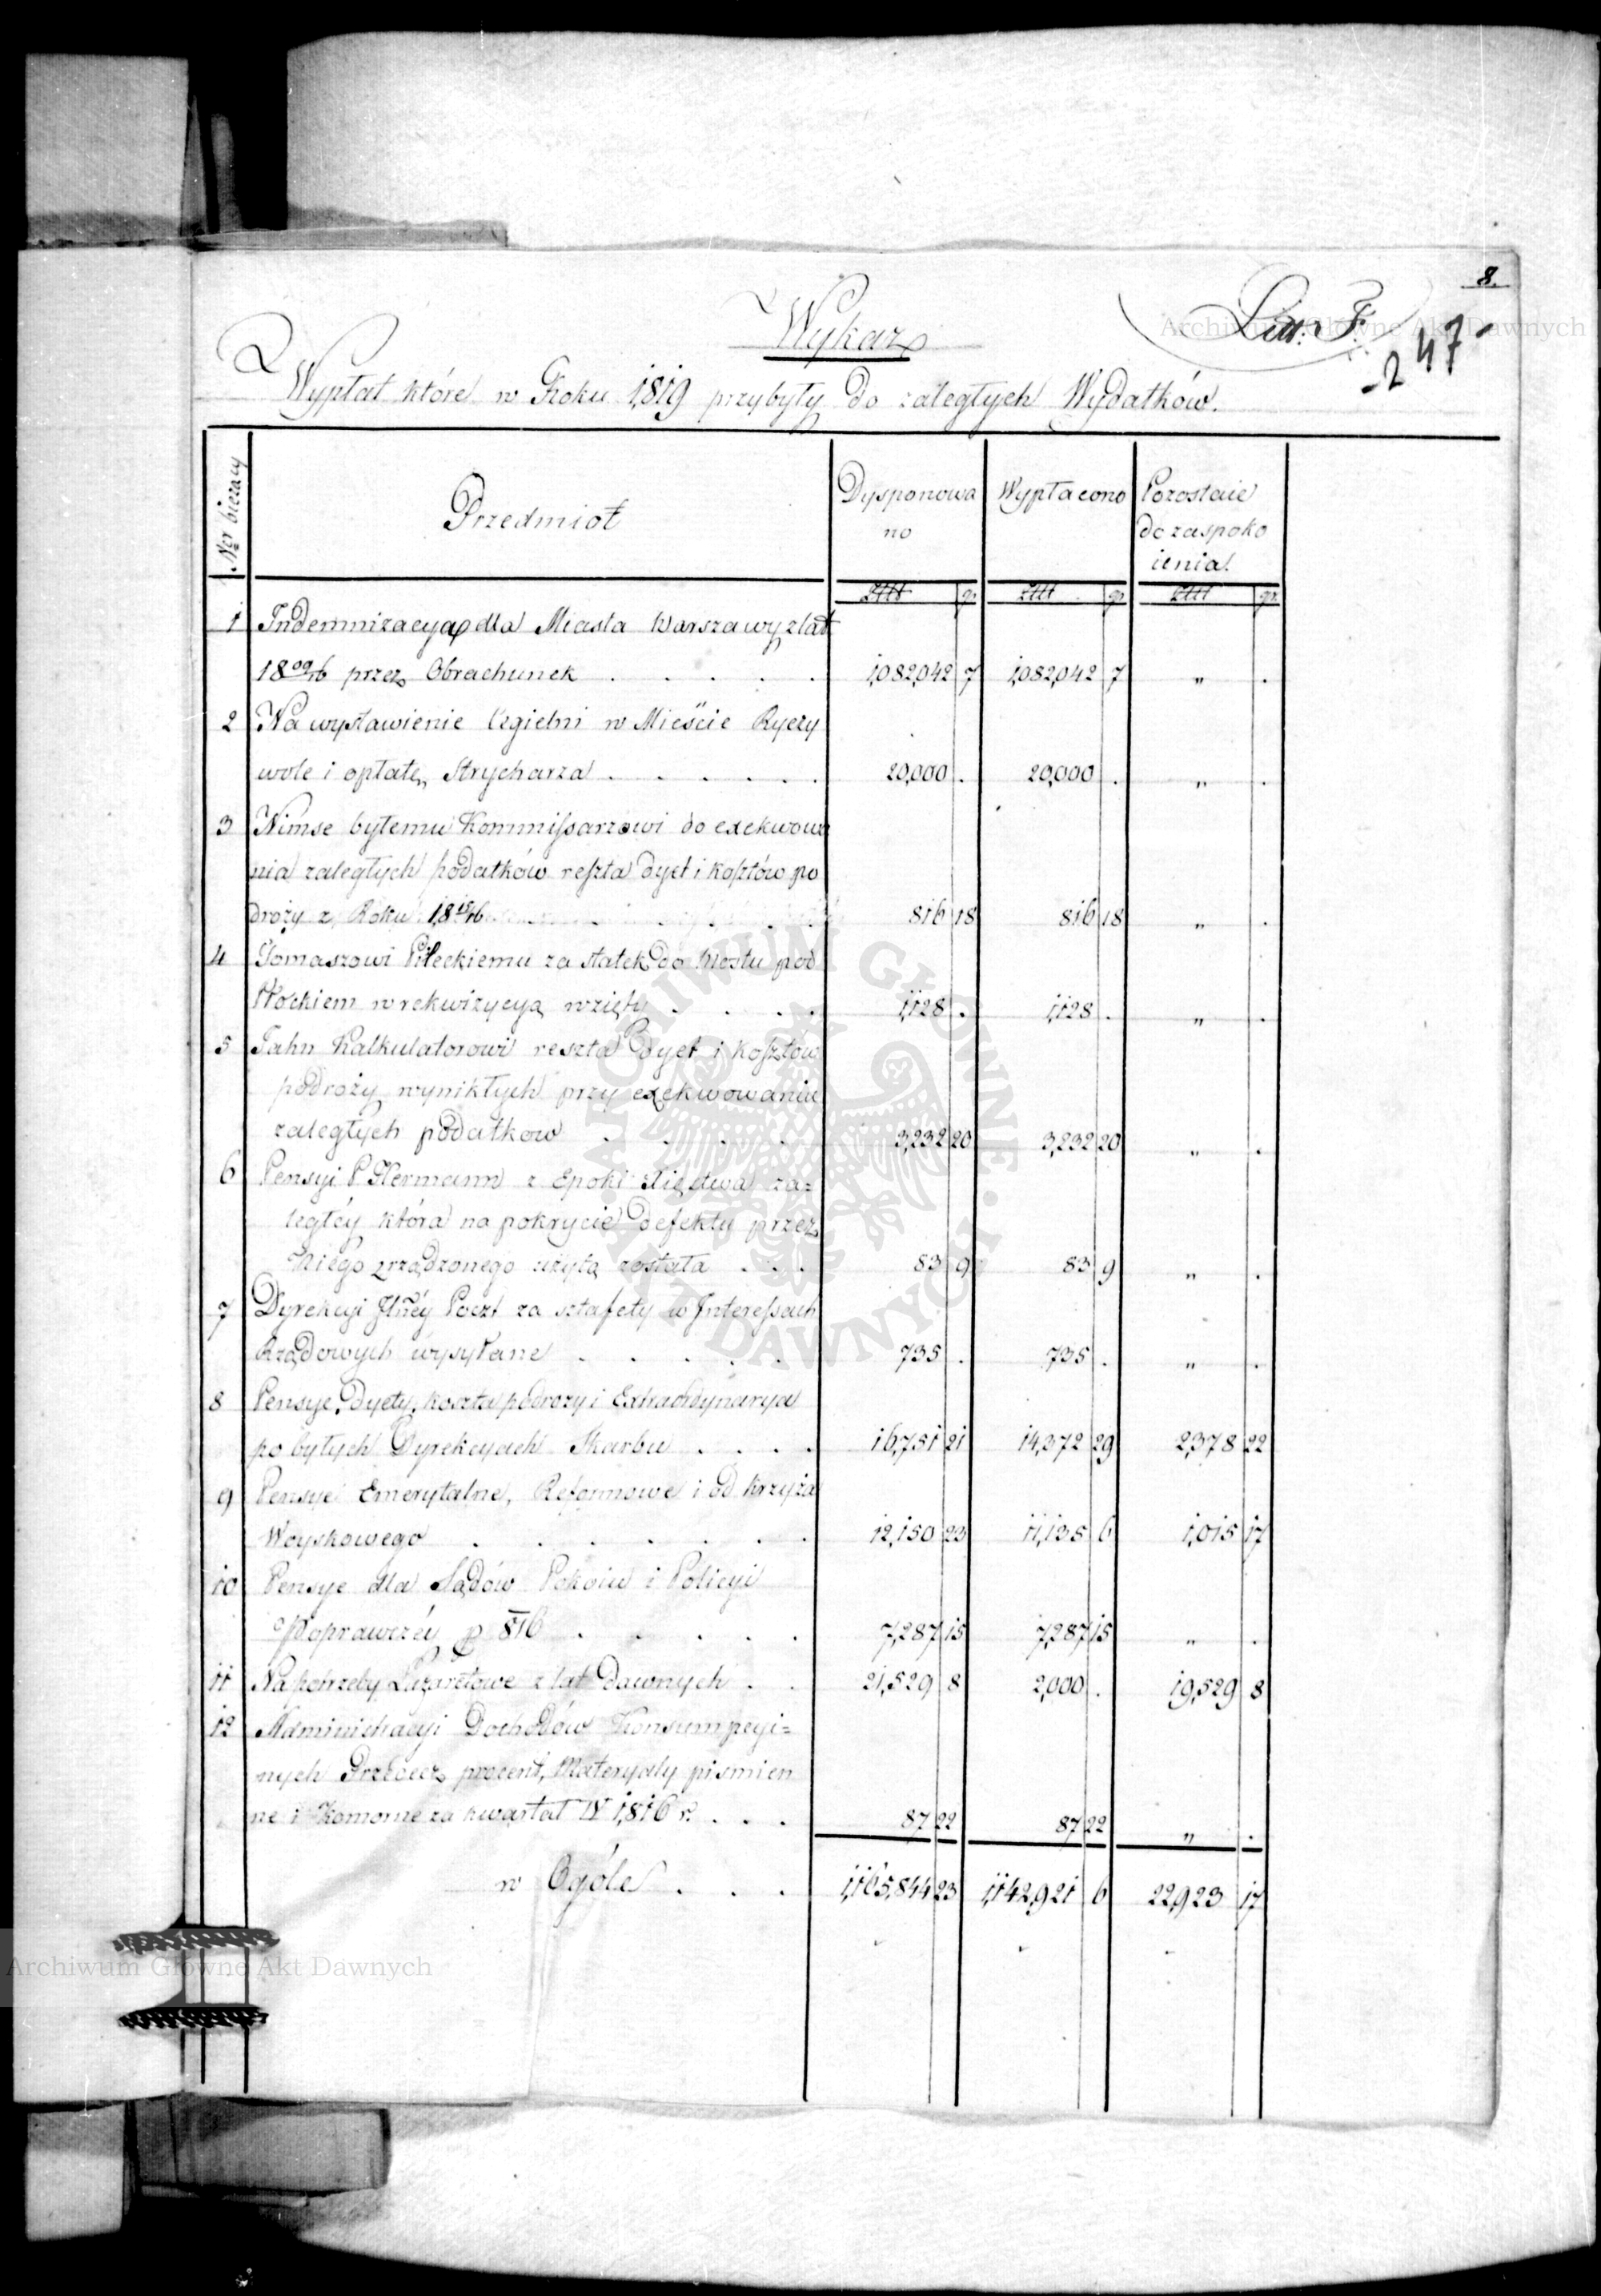 8.
Litt: F.
247
Wykaz
Wypłat które w Roku 1819 przybyły do zaległych Wydatków.
Nr bieżacy
Przedmiot
Dysponowa
no
Wypłacono
Pozostaie
do zaspoko
ienia.
Złtt gr. Złtt gr. Złtt gr.
1 Indemnizacya dla Miasta Warszawy z lat
18 09/16 przez Obrachunek . . . . . 1,082,042 7 1,082,042 7 „ .
2 Na wystawienie Cegielni w Mieście Ryczy
wole i opłatę Strycharza . . . . . . 20,000 . 20,000 . „ .
3 Nimse byłemu Kommissarzowi do exekwowa
nia zaległych podatków reszta dyet i kosztów po
droży z Roku 18 15/16 . . . . . . 816 18 816 18 „ .
4 Tomaszowi Pileckiemu za statek do Mostu pod
Płockiem w rekwizycyą wzięty . . . . 1,128 . 1,128 . „ .
5 Jahn Kalkulatorowi reszta Dyet i kosztów
podroży wynikłych przy exekwowaniu
zaległych podatkow . . . . 3,232 20 3,232 20 „ .
6 Pensyi P Hermann z Epoki Xięstwa za=
ległéy która na pokrycie Defektu przez
Niego zrządzonego użytą została . . . 83 9 83 9 „ .
7 Dyrekcyi Jlnéy Poczt za sztafety w Interessach
Rządowych wysyłane . . . . . 735 . 735 . „ .
8 Pensye, Dyety, koszta podroży i Extraordynarya
po byłych Dyrekcyach Skarbu . . . . 16,751 21 14,372 29 2,378 22
9 Pensye Emerytalne, Reformowe i od Krzyża
Woyskowego . . . . . . . 12,150 23 11,135 6 1,015 17
10 Pensye dla Sądów Pokoiu i Policyi
Poprawczéy p 816 . . . . . 7,287 15 7,287 15 „ .
11 Na potrzeby Lazaretowe z lat Dawnych . . 21,529 8 2,000 . 19,529 8
12 Administracyi Dochodów Konsumpcyi=
nych procent, Materyały pismien
ne i Komorne za kwartał IV 1,816 r. . . . 87 22 87 22 „ .
w Ogóle . . . 1,165,844 23 1,142,921 6 22,923 17
Archiwum Główne Akt Dawnych
Archiwum Główne Akt Dawnych
ARCHIWUM GŁÓWNE AKT DAWNYCH